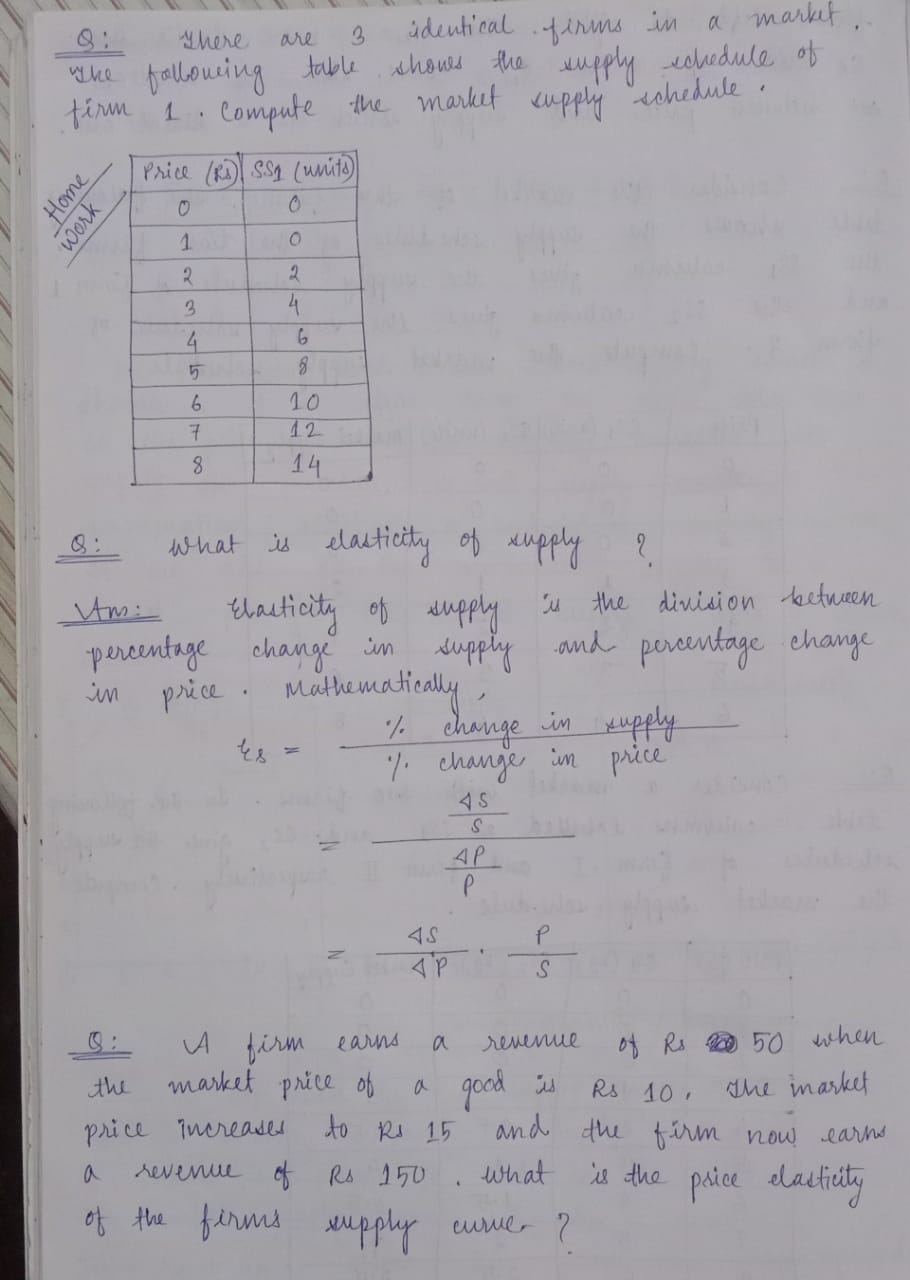 Q: There are 3 identical firms in a market.
The following table shows the supply schedule of
firm 1. Compute the market supply schedule.
Home
Work
Price (Rs) SS1 (units)
0 0
1 0
2 2
3 4
4 6
5 8
6 10
7 12
8 14
Q: What is elasticity of supply ?
Ans: Elasticity of supply is the division between
percentage change in supply and percentage change
in price. Mathematically,
Es = % change in supply
% change in price
= ΔS
S
ΔP
P
= ΔS/ΔP . P/S
Q: A firm earns a revenue of Rs 50 when
the market price of a good is Rs 10. The market
price increases to Rs 15 and the firm now earns
a revenue of Rs 150. What is the price elasticity
of the firms supply curve ?